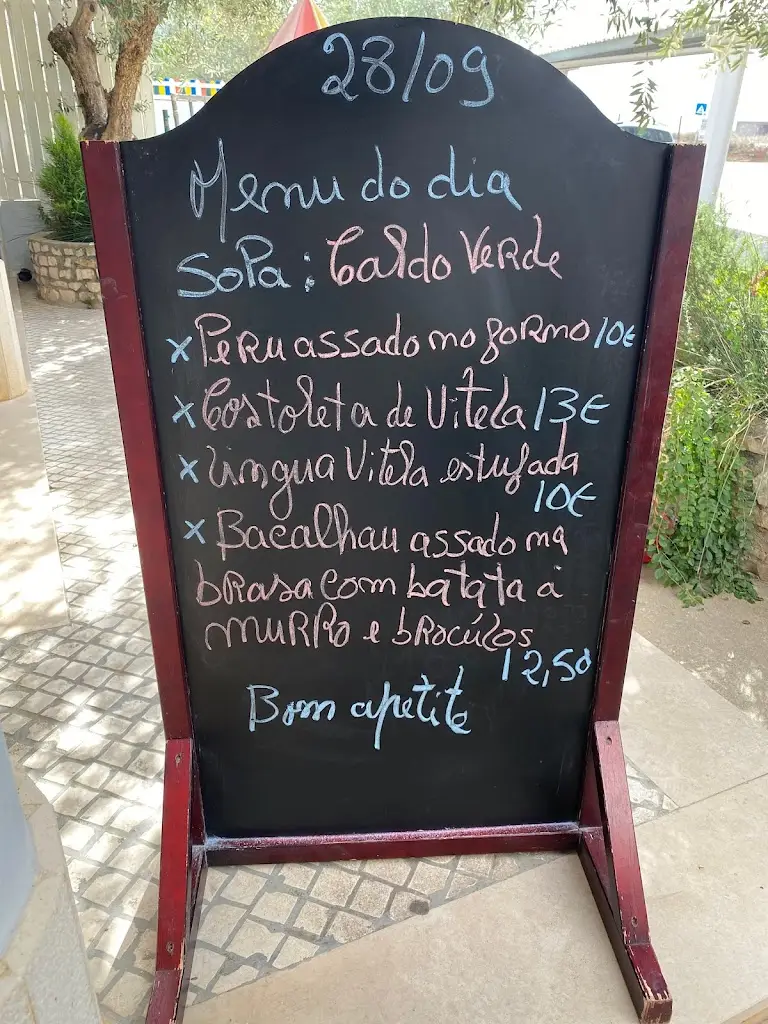 28/09
Menu do dia
Sopa: Caldo Verde
x Peru assado no forno 10€
x Costoleta de Vitela 13€
x Lingua Vitela estufada
10€
x Bacalhau assado na
brasa com batata á
murro e brocúlos
12,50
Bom apetite